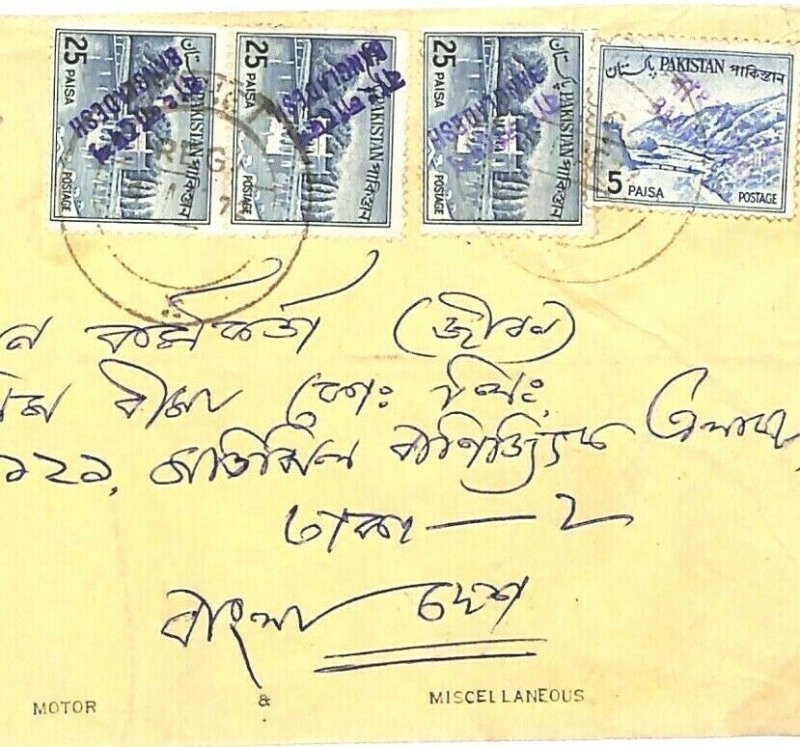 25 PAISA POSTAGE پاکستان PAKISTAN পাকিস্তান
বাংলাদেশ BANGLADESH
25 PAISA POSTAGE پاکستان PAKISTAN পাকিস্তান
বাংলাদেশ BANGLADESH
25 PAISA POSTAGE پاکستان PAKISTAN পাকিস্তান
বাংলাদেশ BANGLADESH
پاکستان PAKISTAN পাকিস্তান
5 PAISA POSTAGE
কর্মকর্তা (জীবন)
বীমা কোঃ লিঃ,
১২১, মতিঝিল বাণিজ্যিক এলাকা,
ঢাকা — ২
বাংলা দেশ
MOTOR & MISCELLANEOUS